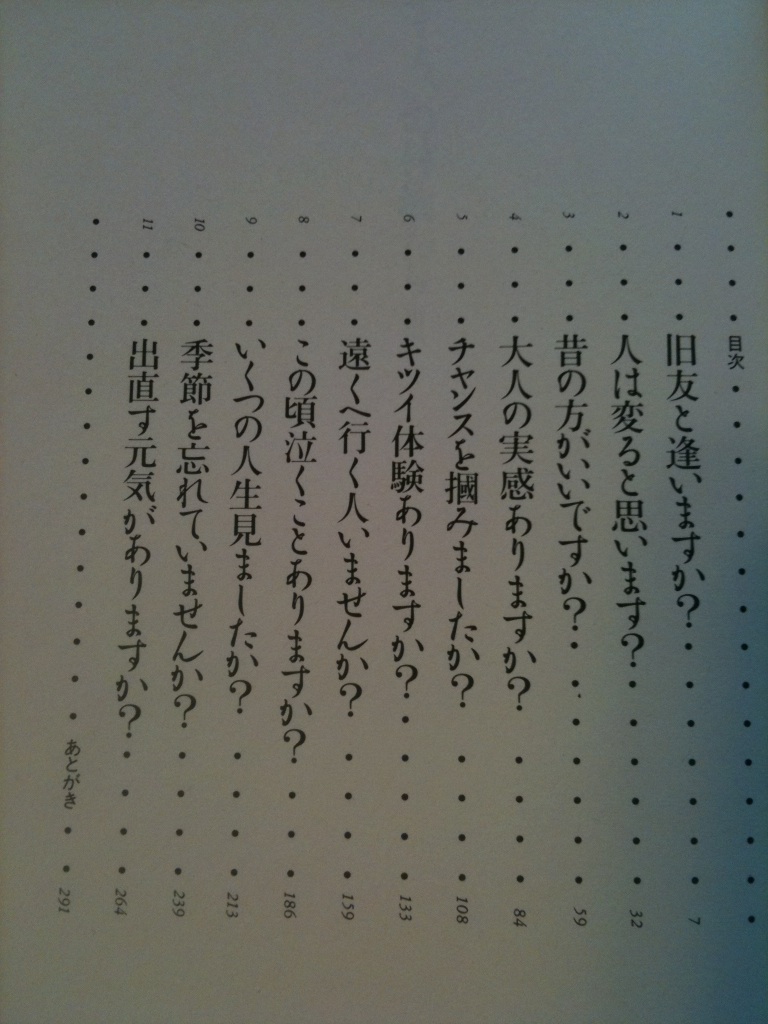 目次
1 旧友と逢いますか? 7
2 人は変ると思います? 32
3 昔の方がいいですか? 59
4 大人の実感ありますか? 84
5 チャンスを摑みましたか? 108
6 キツイ体験ありますか? 133
7 遠くへ行く人いませんか? 159
8 この頃泣くことありますか? 186
9 いくつの人生見ましたか? 213
10 季節を忘れていませんか? 239
11 出直す元気がありますか? 264
あとがき 291